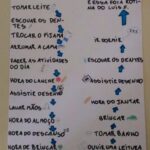 TOMAR LEITE
ESCOVAR OS DEN-
TES
TROCAR O PIJAMA
ARRUMAR A CAMA
FAZER AS ATIVIDADES
DO DIA
HORA DO LANCHE
ASSISTIR DESENHO
LAVAR MÃOS
HORA DO ALMOÇO
HORA DO DESCANSO
HORA DE BRINCAR
ESSA FOI A ROTI-
NA DO LUIS F.
IR DORMIR
ESCOVAR OS DENTES
ASSISTIR DESENHO
HORA DO JANTAR
BRINCAR
TOMAR BANHO
OUVIR UMA LEITURA